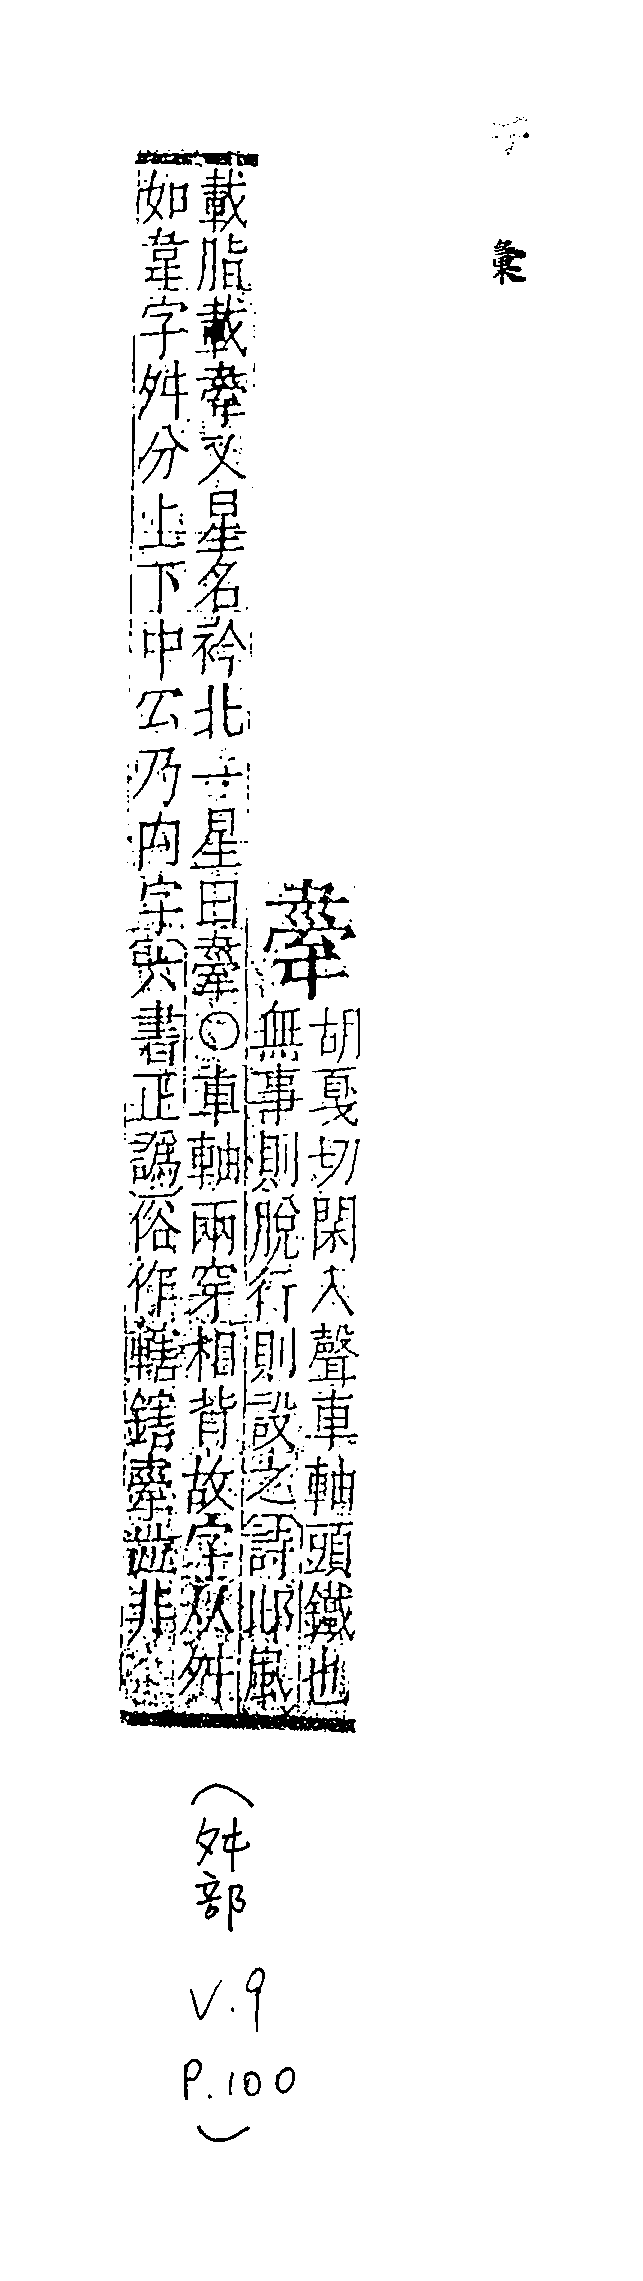 彙
舝
胡戛切閑入聲車軸頭鐵也
無事則脫行則設之詩邶風
載脂載舝又星名衿北一星曰舝○車軸兩穿相背故字从舛
如韋字舛分上下中乃內字六書正譌俗作轄鎋並非
（舛部
V.9
P.100
）